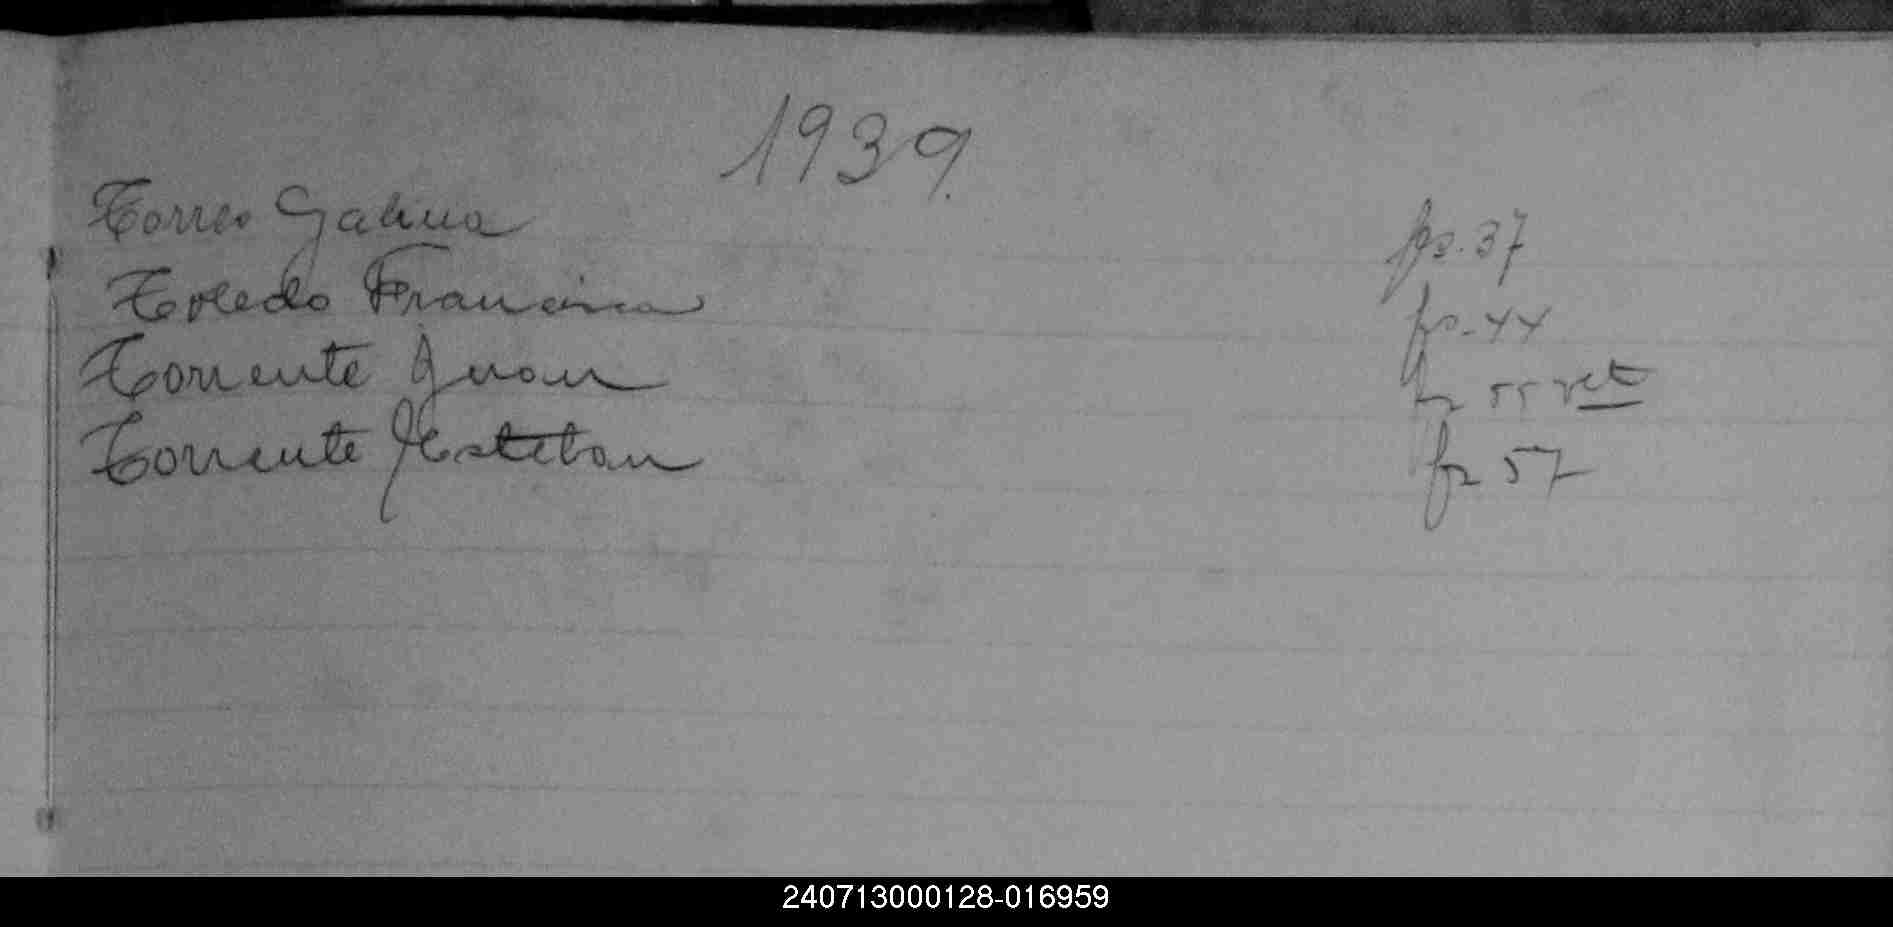 1939.
Torres Galina fs. 37
Toledo Francisca fs. 44
Torrente Juan fs 55 vta
Torrente Esteban fs 57
240713000128-016959